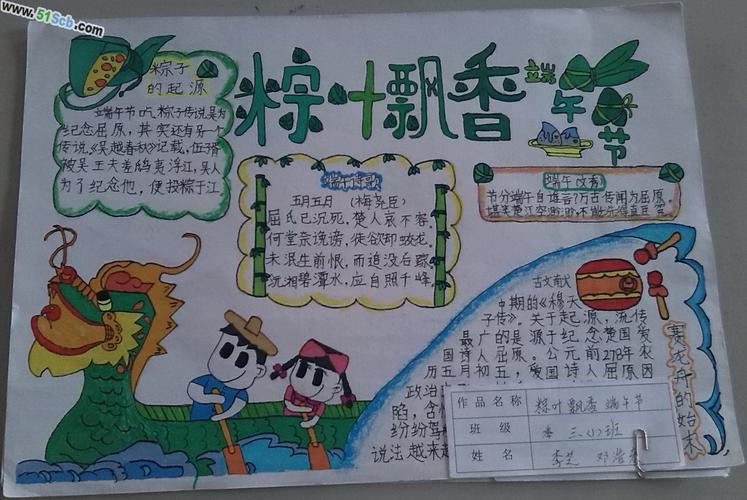 www.51Scb.com
粽子
的起源
端午节吃粽子传说是为
纪念屈原，其实还有另一个
传说《吴越春秋》记载，伍子胥
被吴王夫差鸱夷浮江，吴人
为了纪念他，便投粽于江
粽叶飘香
端午节
端午诗歌
五月五日 （梅尧臣）
屈氏已沉死，楚人哀不容。
何尝奈谗谤，徒欲却蛟龙。
未泯生前恨，而追没后踪
沅湘碧潭水，应自照千峰
端午
节分端午自谁言？万古传闻为屈原。
堪笑楚江空渺渺，不能洗得直臣冤
古文献
中期的《穆天
子传》。关于起源，流传
最广的是源于纪念楚国爱
国诗人屈原。公元前278年农
历五月初五，爱国诗人屈原因
政治
陷，含
纷纷驾
说法越来越
赛龙舟的始末
作品名称 粽叶飘香 端午节
班级 三(1)班
姓名 李艺 邓浩